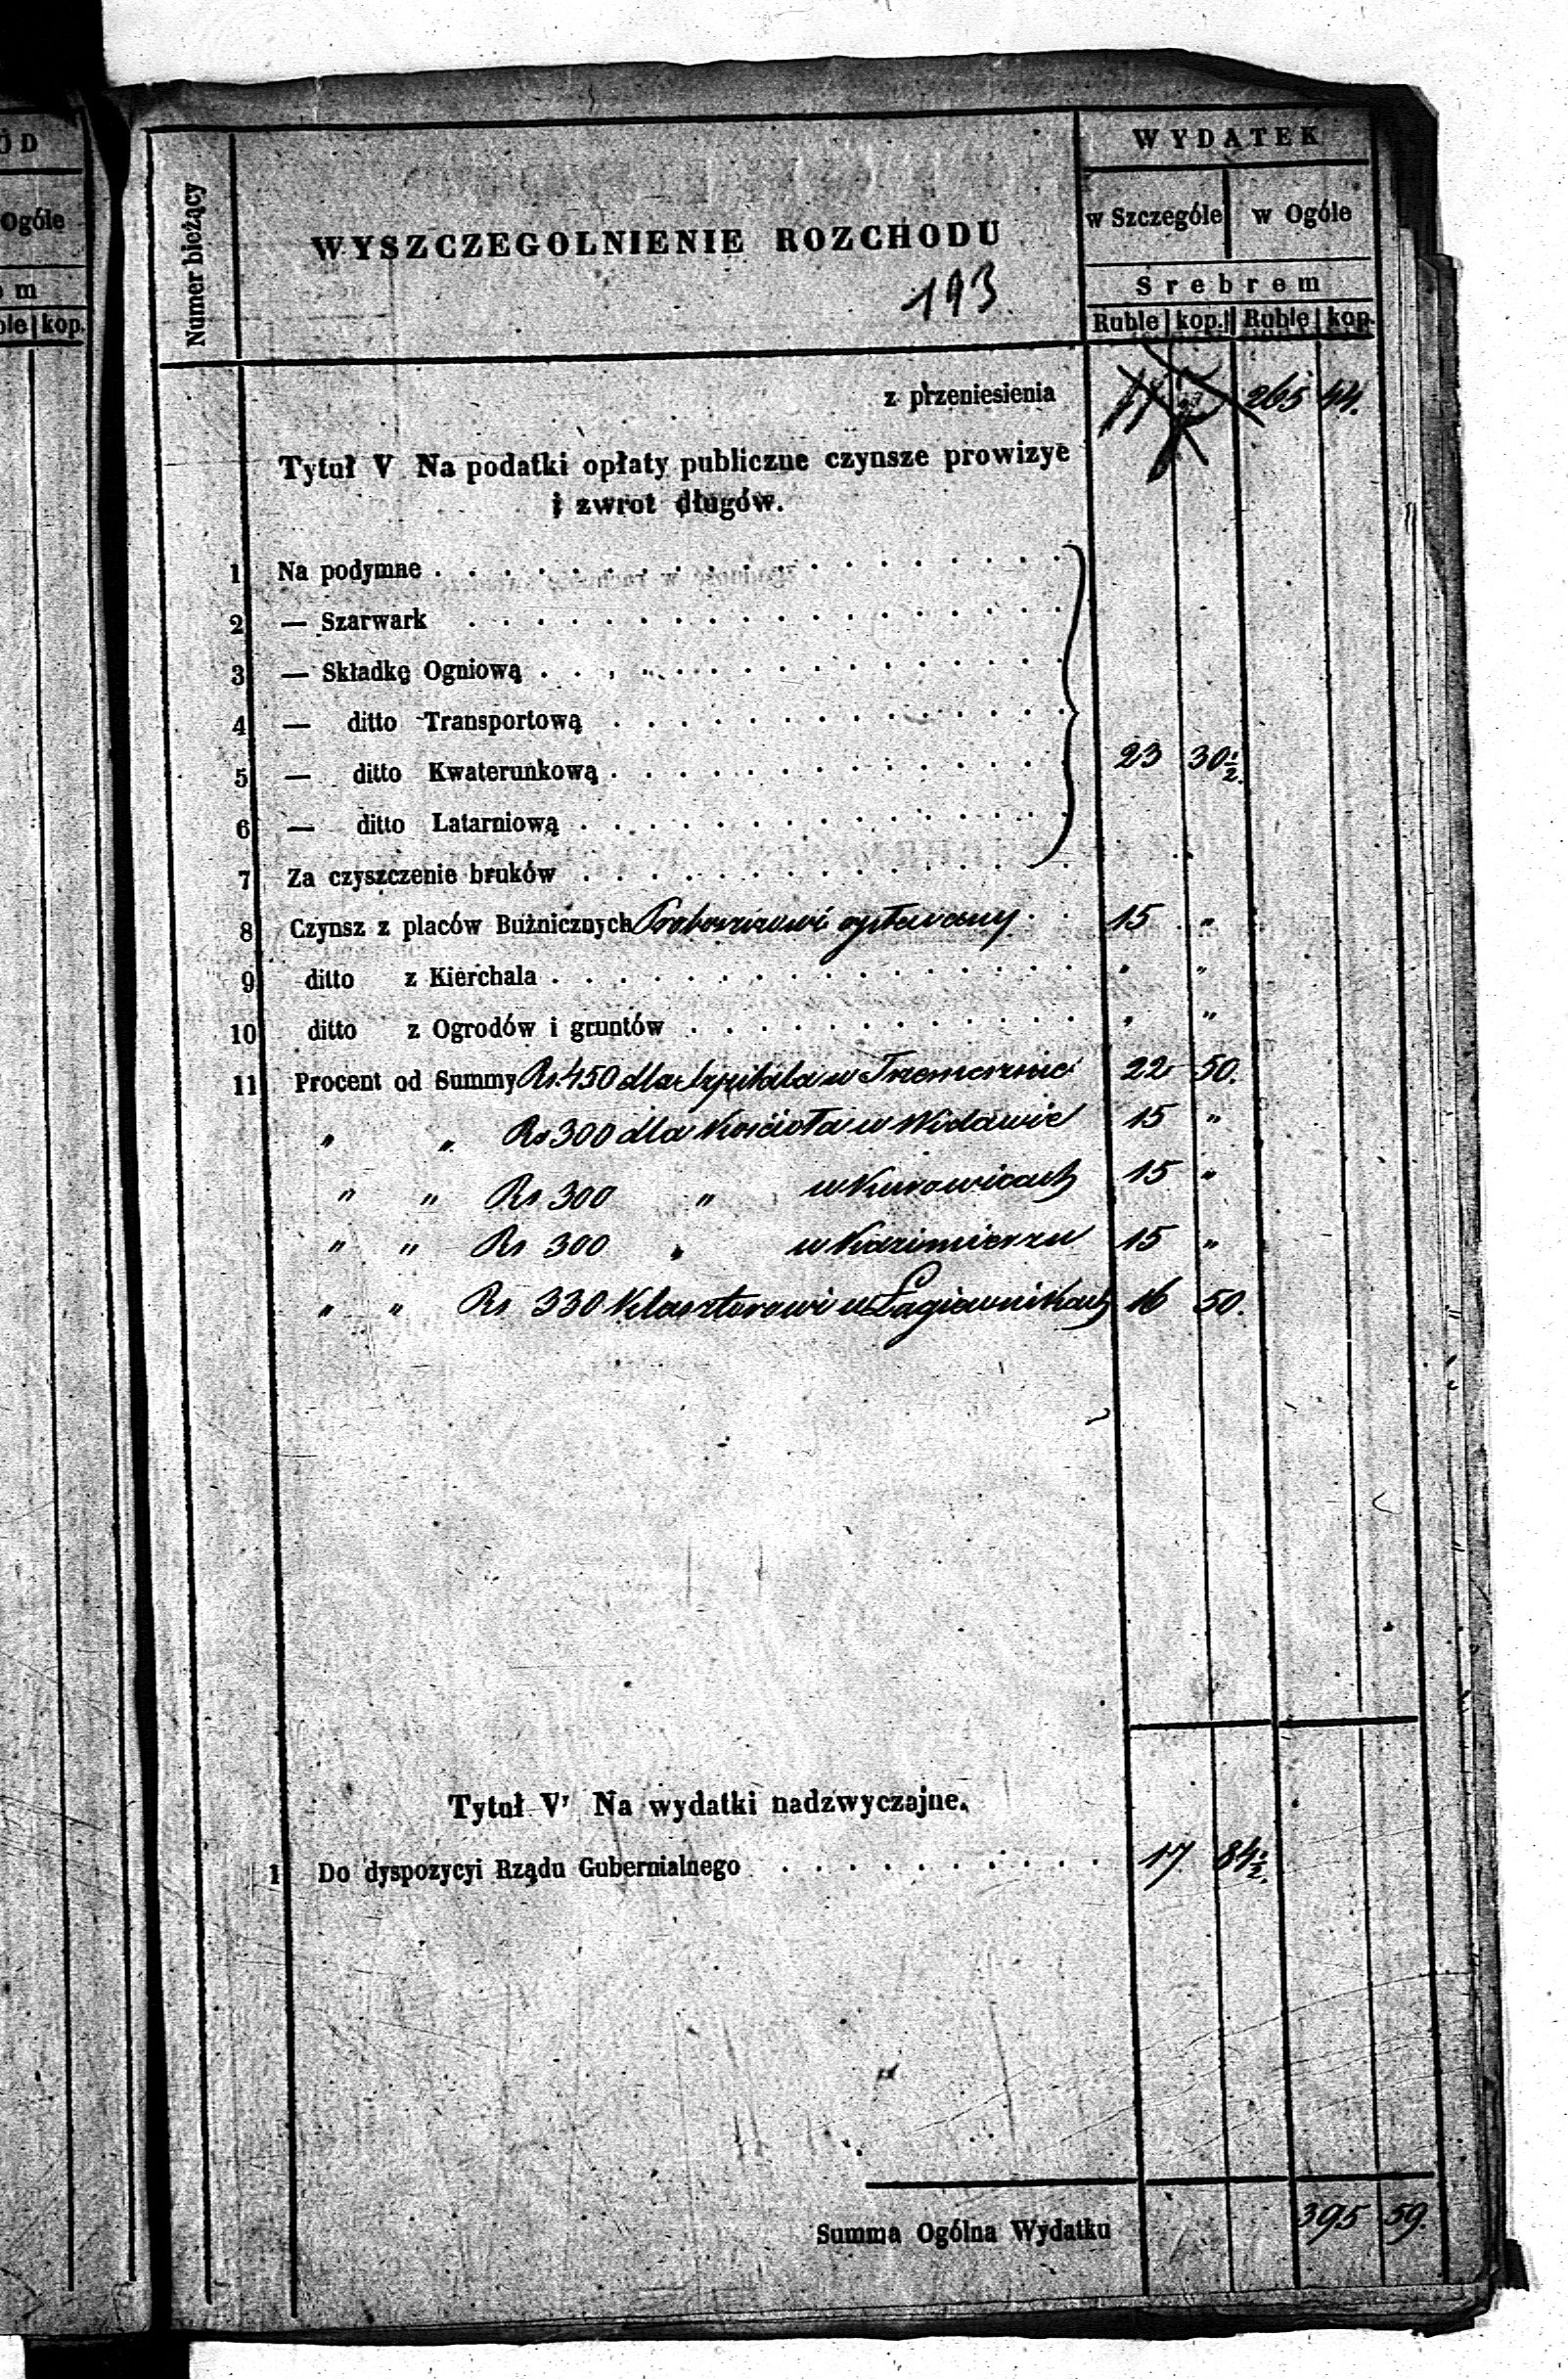 ÓD
Ogóle
om
ble kop.
Numer bieżący
WYSZCZEGOLNIENIE ROZCHODU
193
WYDATEK
w Szczególe w Ogóle
Srebrem
Ruble kop. Ruble kop.
z przeniesienia 265 44.
Tytuł V Na podatki opłaty publiczne czynsze prowizye
i zwrot długów.
1 Na podymne
2 — Szarwark
3 — Składkę Ogniową
4 — ditto Transportową
5 — ditto Kwaterunkową 23 30½.
6 — ditto Latarniową
7 Za czyszczenie bruków
8 Czynsz z placów Bużnicznych Proboszczowi opłacany 15 "
9 ditto z Kierchala " "
10 ditto z Ogrodów i gruntów " "
11 Procent od Summy Rs. 450 dla szpitala w 22 50.
" " Rs 300 dla Kościoła w Widawie 15 "
" " Rs 300 " w Kurowicach 15 "
" " Rs 300 " w Kazimierzu 15 "
" " Rs 330 Klasztorowi w Łagiewnikach 16 50.
Tytuł V' Na wydatki nadzwyczajne.
1 Do dyspozycyi Rządu Gubernialnego 17 84½.
Summa Ogólna Wydatku 395 59.